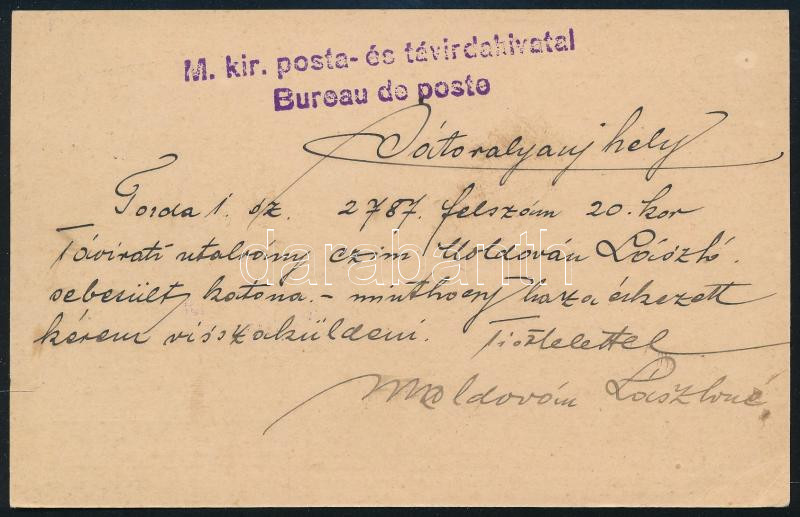 M. kir. posta- és távirdahivatal
Bureau de poste
Sátoralyaujhely
Torda 1. sz. 2787. felszám 20. kor
Távirati utalvány czim Moldován László.
sebesült katona. – minthogy haza érkezett
kérem visszaküldeni. Tisztelettel
Moldován Lászlóné
darabanth